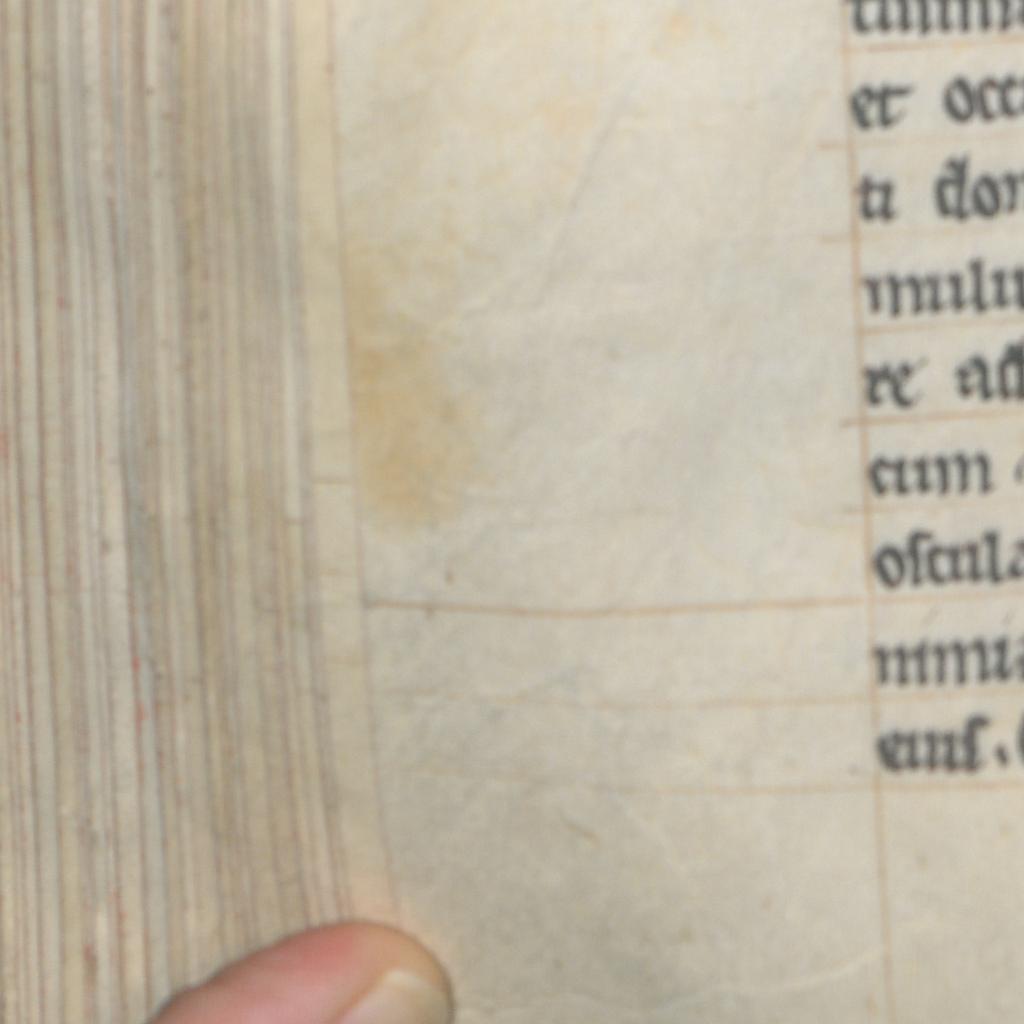 et occ
ti dom
mulu
re ad
cum
oſcula
nimia
eiuſ.